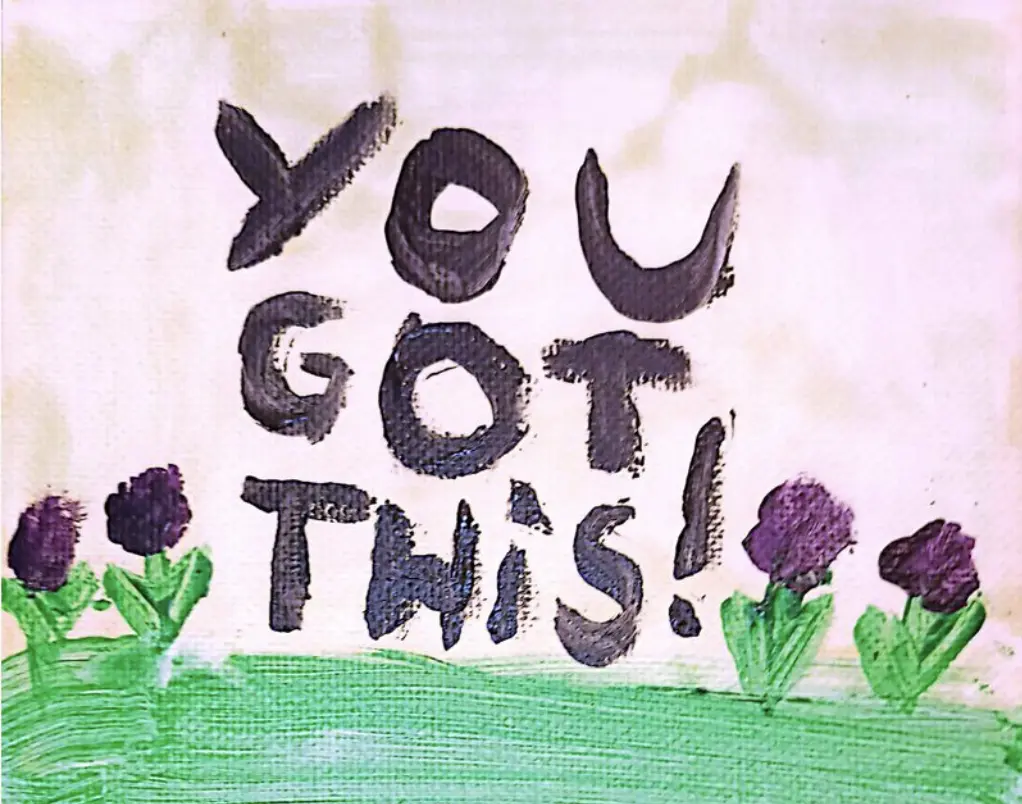 YOU
GOT
THiS!